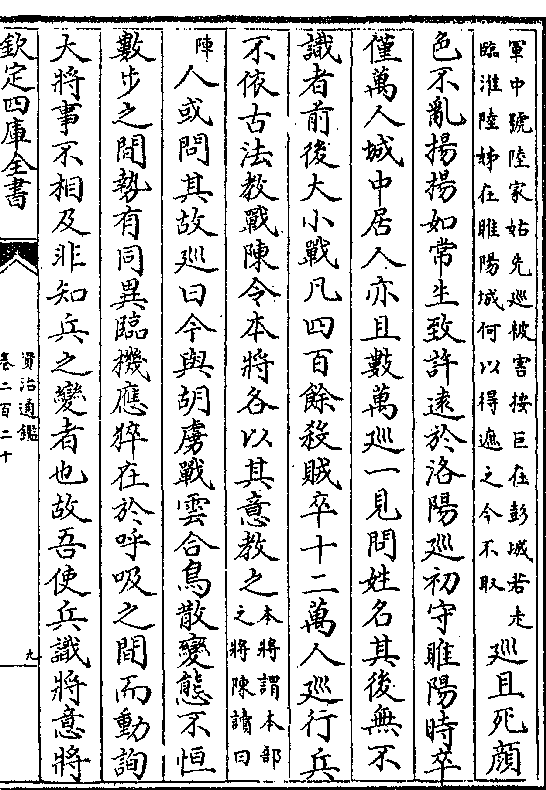 軍中號陸家姑先巡被害按巨在彭城若走
臨淮陸姊在睢陽城何以得遮之今不取
巡且死顔
色不亂揚揚如常生致許遠於洛陽巡初守睢陽時卒
僅萬人城中居人亦且數萬巡一見問姓名其後無不
識者前後大小戰凡四百餘殺賊卒十二萬人巡行兵
不依古法教戰陳令本將各以其意教之
本將謂本部
之將陳讀曰
陣
人或問其故巡曰今與胡虜戰雲合鳥散變態不恒
數步之間勢有同異臨機應猝在於呼吸之間而動詢
大將事不相及非知兵之變者也故吾使兵識將意將
欽定四庫全書
資治通鑑
卷二百二十
九